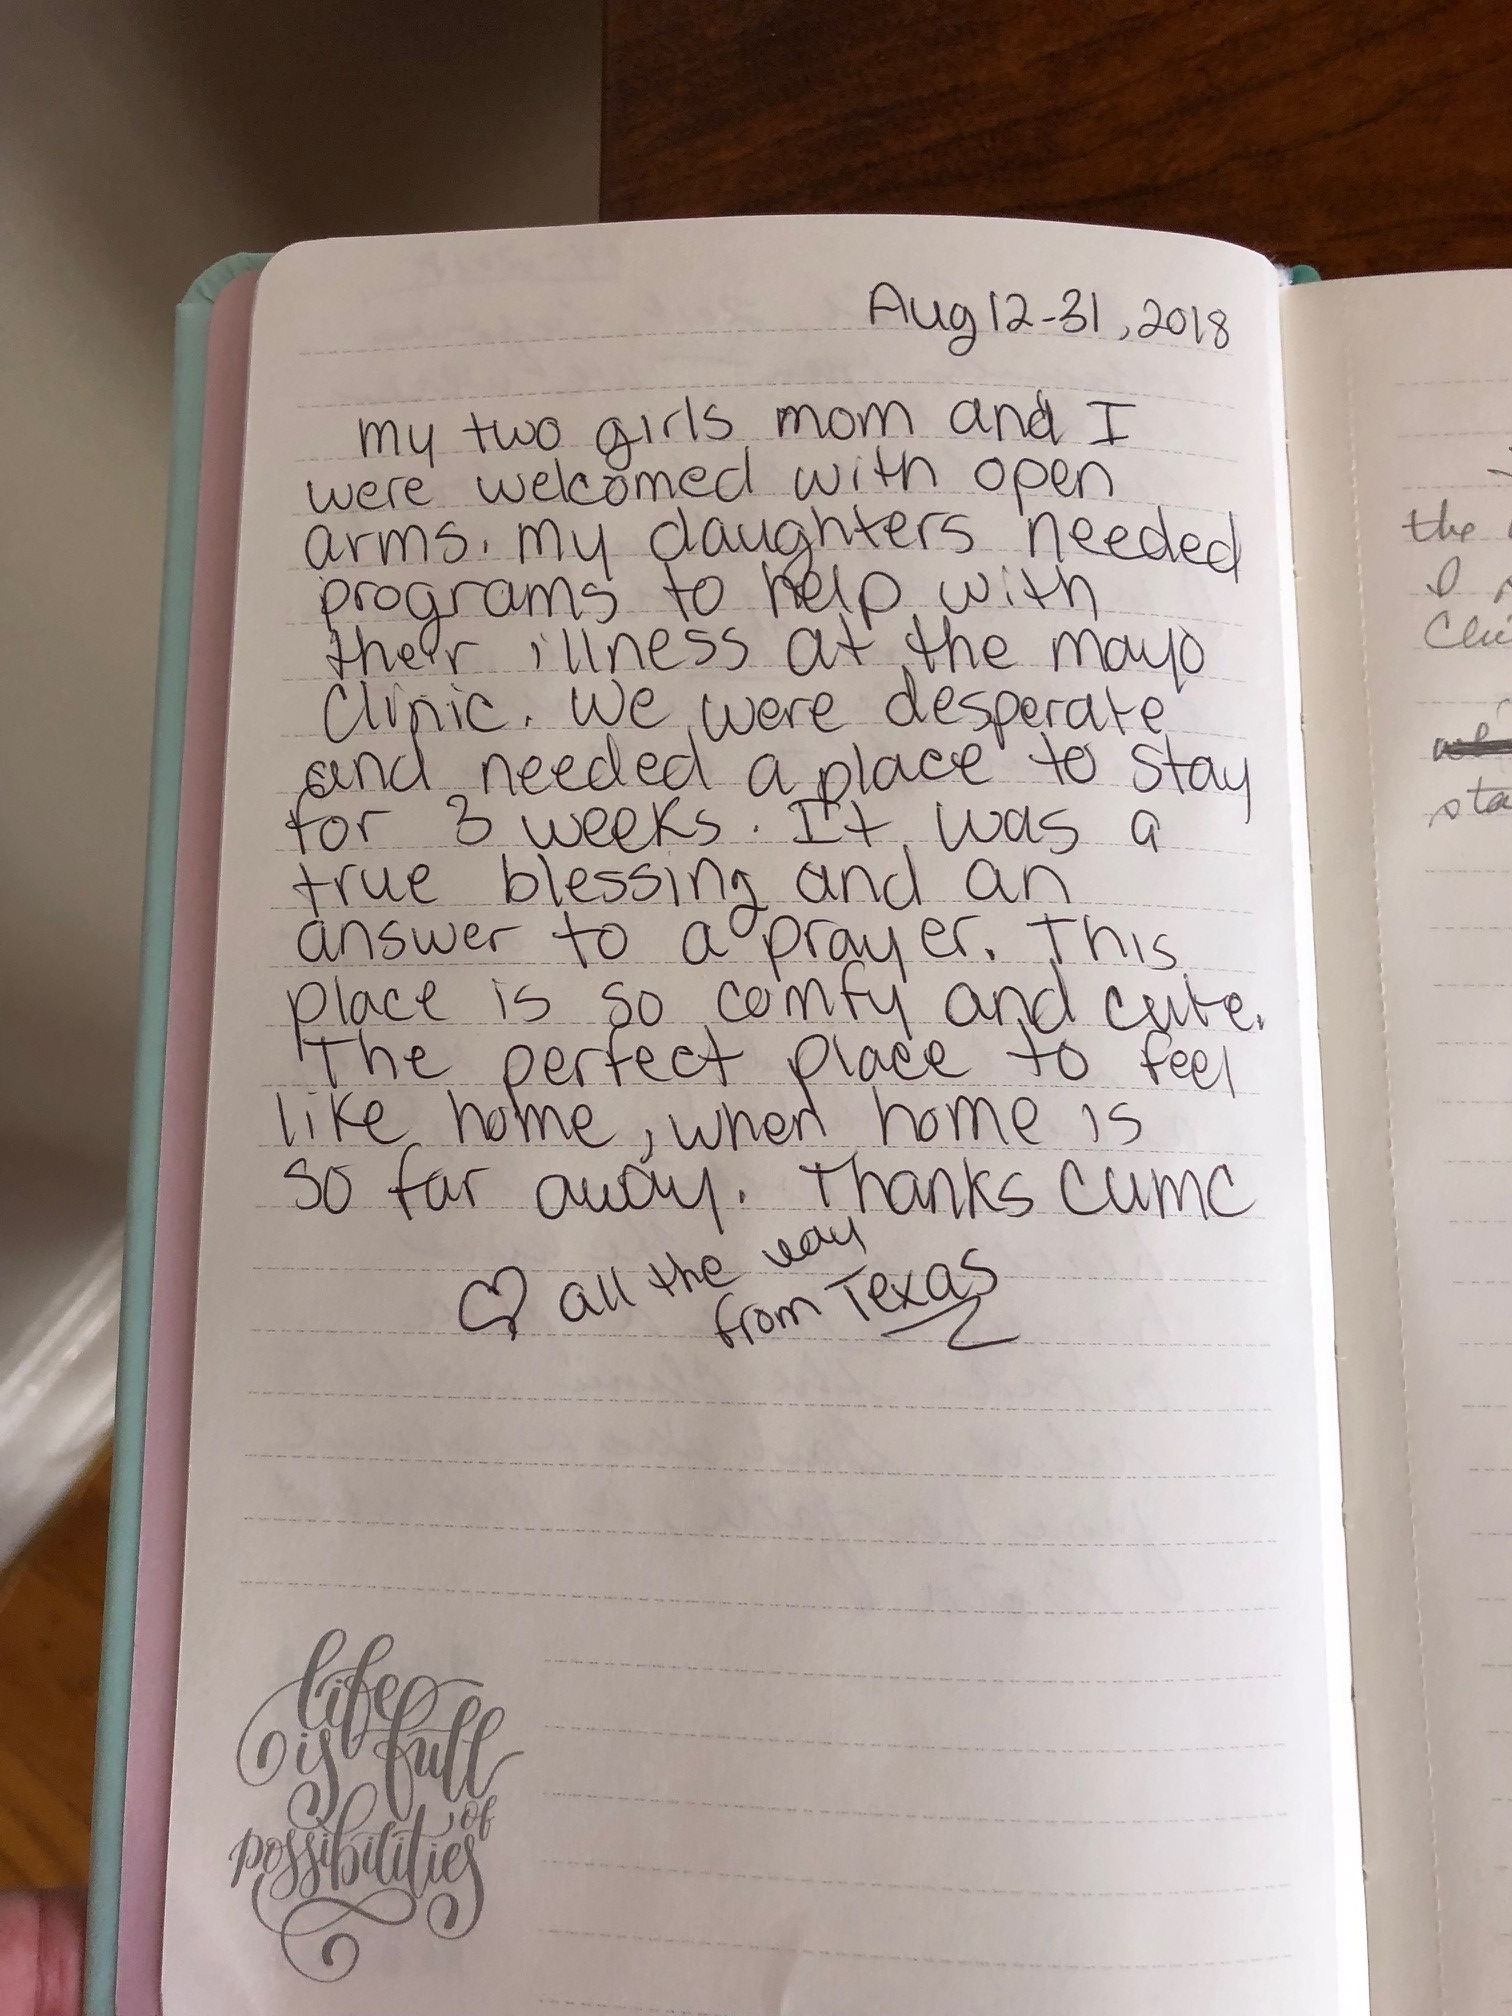 Aug 12-31, 2018
my two girls mom and I
were welcomed with open
arms. my daughters needed
programs to help with
their illness at the mayo
Clinic. We were desperate
and needed a place to stay
for 3 weeks. It was a
true blessing and an
answer to a prayer. This
place is so comfy and cute.
The perfect place to feel
like home, when home is
so far away. Thanks CUMC
♡ all the way
from Texas
life
is full
of
possibilities
the
I
sta